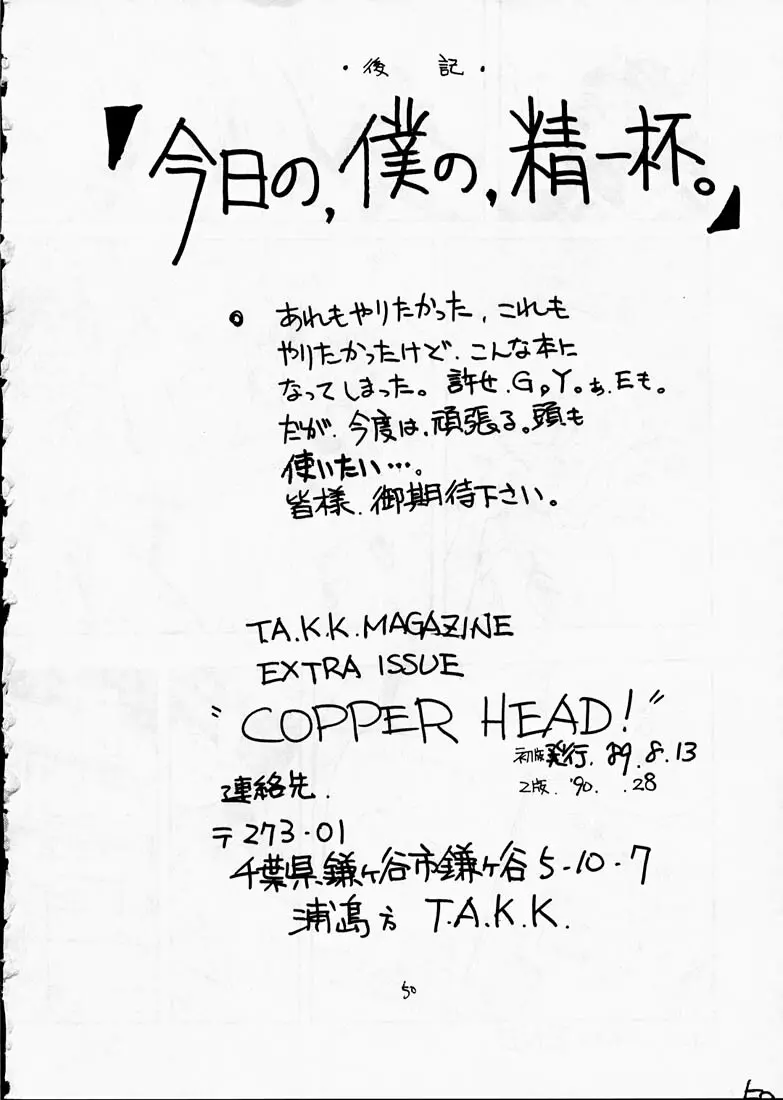 ・後記・
『今日の,僕の,精一杯。』
○ あれもやりたかった、これも
やりたかったけど、こんな本に
なってしまった。許せ、G。Y。ぁ、Eも。
だが、今度は、頑張る。頭も
使いたい…。
皆様、御期待下さい。
T.A.K.K.MAGAZINE
EXTRA ISSUE
"COPPER HEAD!"
初版発行. '89.8.13
2版. '90. .28
連絡先.
〒273-01
千葉県鎌ヶ谷市鎌ヶ谷5-10-7
浦島方 T.A.K.K.
50
50